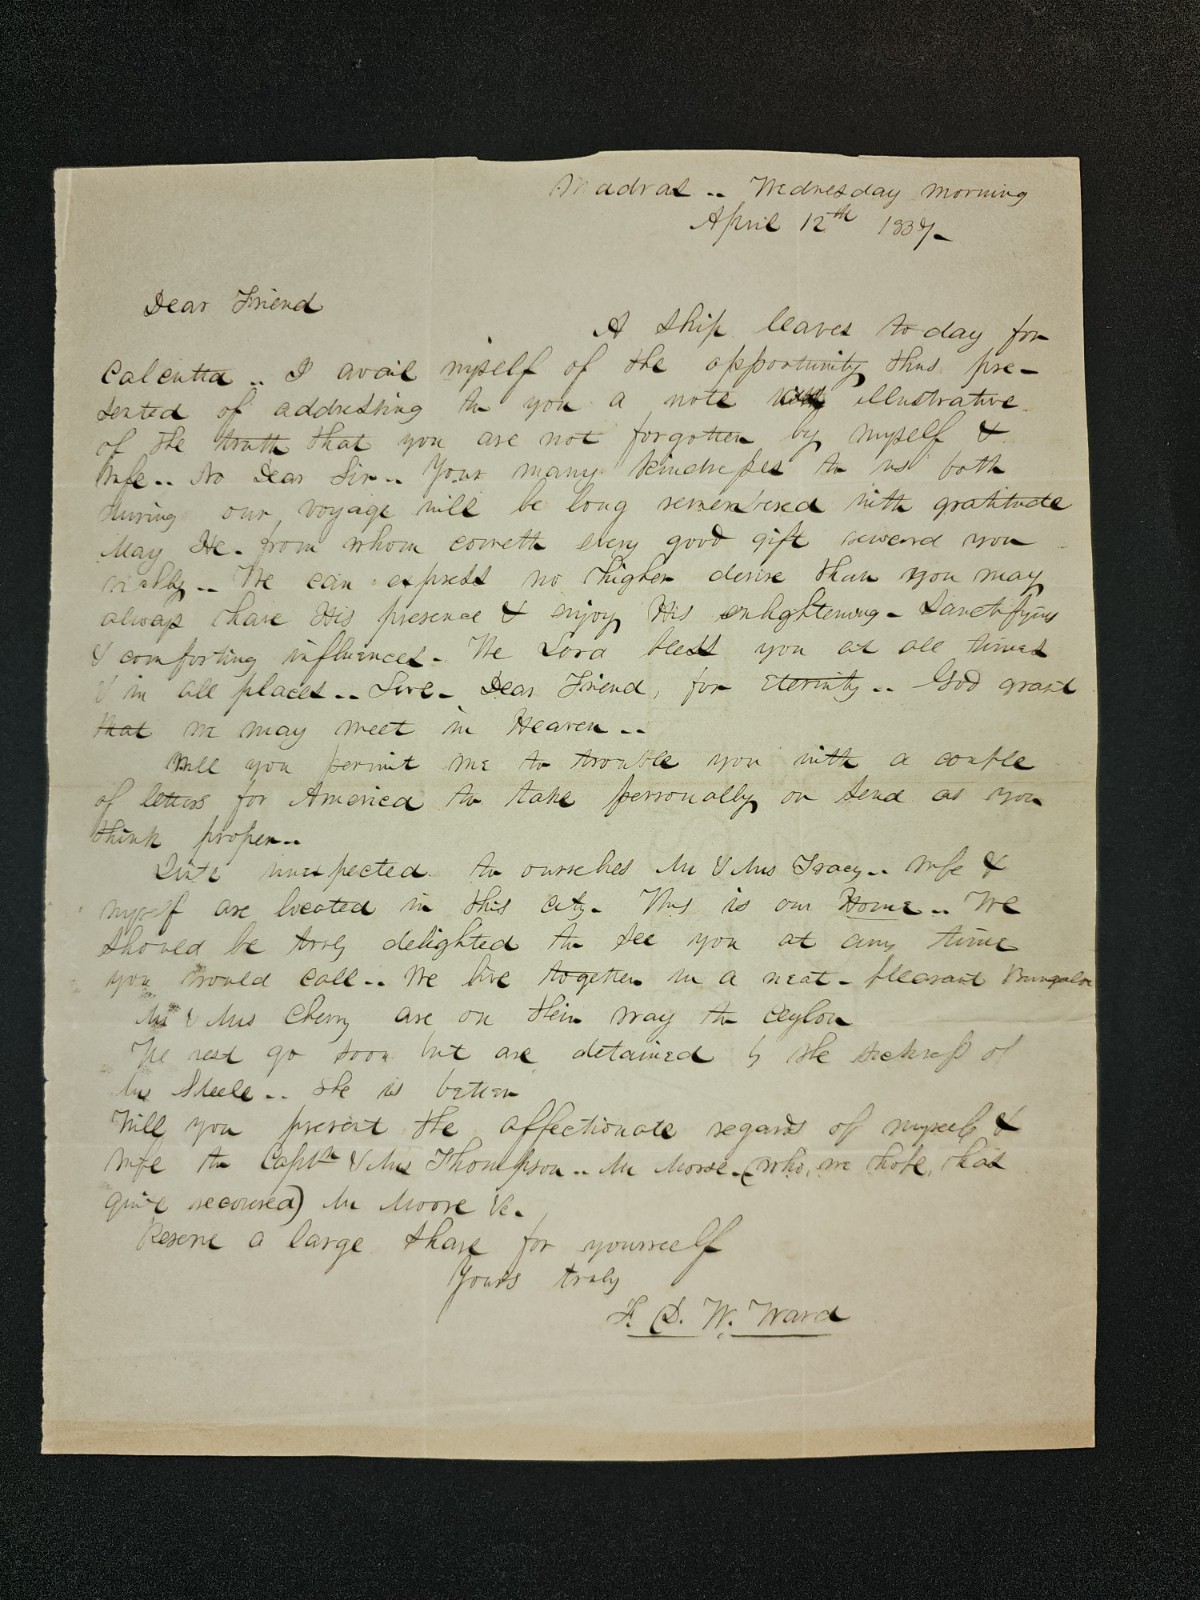 Madras .. Wednesday morning
April 12th 1837-
Dear Friend
A ship leaves to day for
Calcutta .. I avail myself of the opportunity thus pre-
sented of addressing to you a note illustrative
of the truth that you are not forgotten by myself &
wife .. No Dear Sir .. Your many kindnesses to us both
during our voyage will be long remembered with gratitude
May He - from whom cometh every good gift reward you
richly .. We can express no higher desire than you may
always have His presence & enjoy His enlightening - Sanctifying
& comforting influences - The Lord bless you at all times
& in all places .. Live - Dear Friend, for Eternity .. God grant
that we may meet in Heaven ..
Will you permit me to trouble you with a couple
of letters for America to take personally or send as you
think proper ..
Quite unexpected to ourselves Mr & Mrs Tracy .. wife &
myself are located in this city - This is our Home .. We
should be truly delighted to see you at any time
you would call .. We live together in a neat - pleasant Bungalow
Mr & Mrs Cherry are on their way to Ceylon
The rest go soon but are detained by the sickness of
Mrs Steele .. She is better
Will you present the affectionate regards of myself &
wife to Captn & Mrs Thompson .. Mr Morse - (who, we hope, has
quite recovered) Mr Moore &c.
Reserve a large share for yourself
Yours truly
F. D. W. Ward